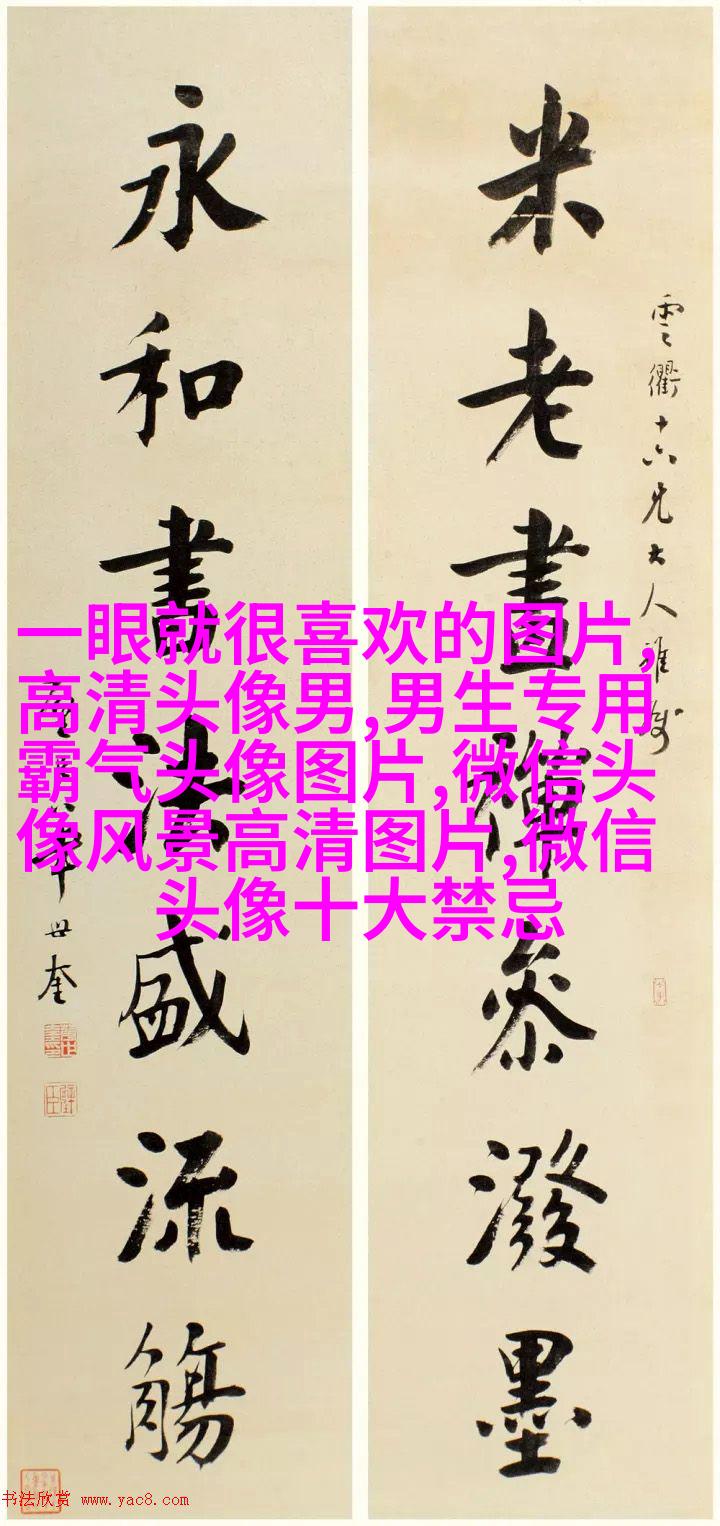 雲衢十六兄大人雅
米老畫禪參潑墨
永和書法盛流觴
世奎
一眼就很喜欢的图片,
高清头像男,男生专用
霸气头像图片,微信头
像风景高清图片,微信
头像十大禁忌
书法欣赏 www.yac8.com